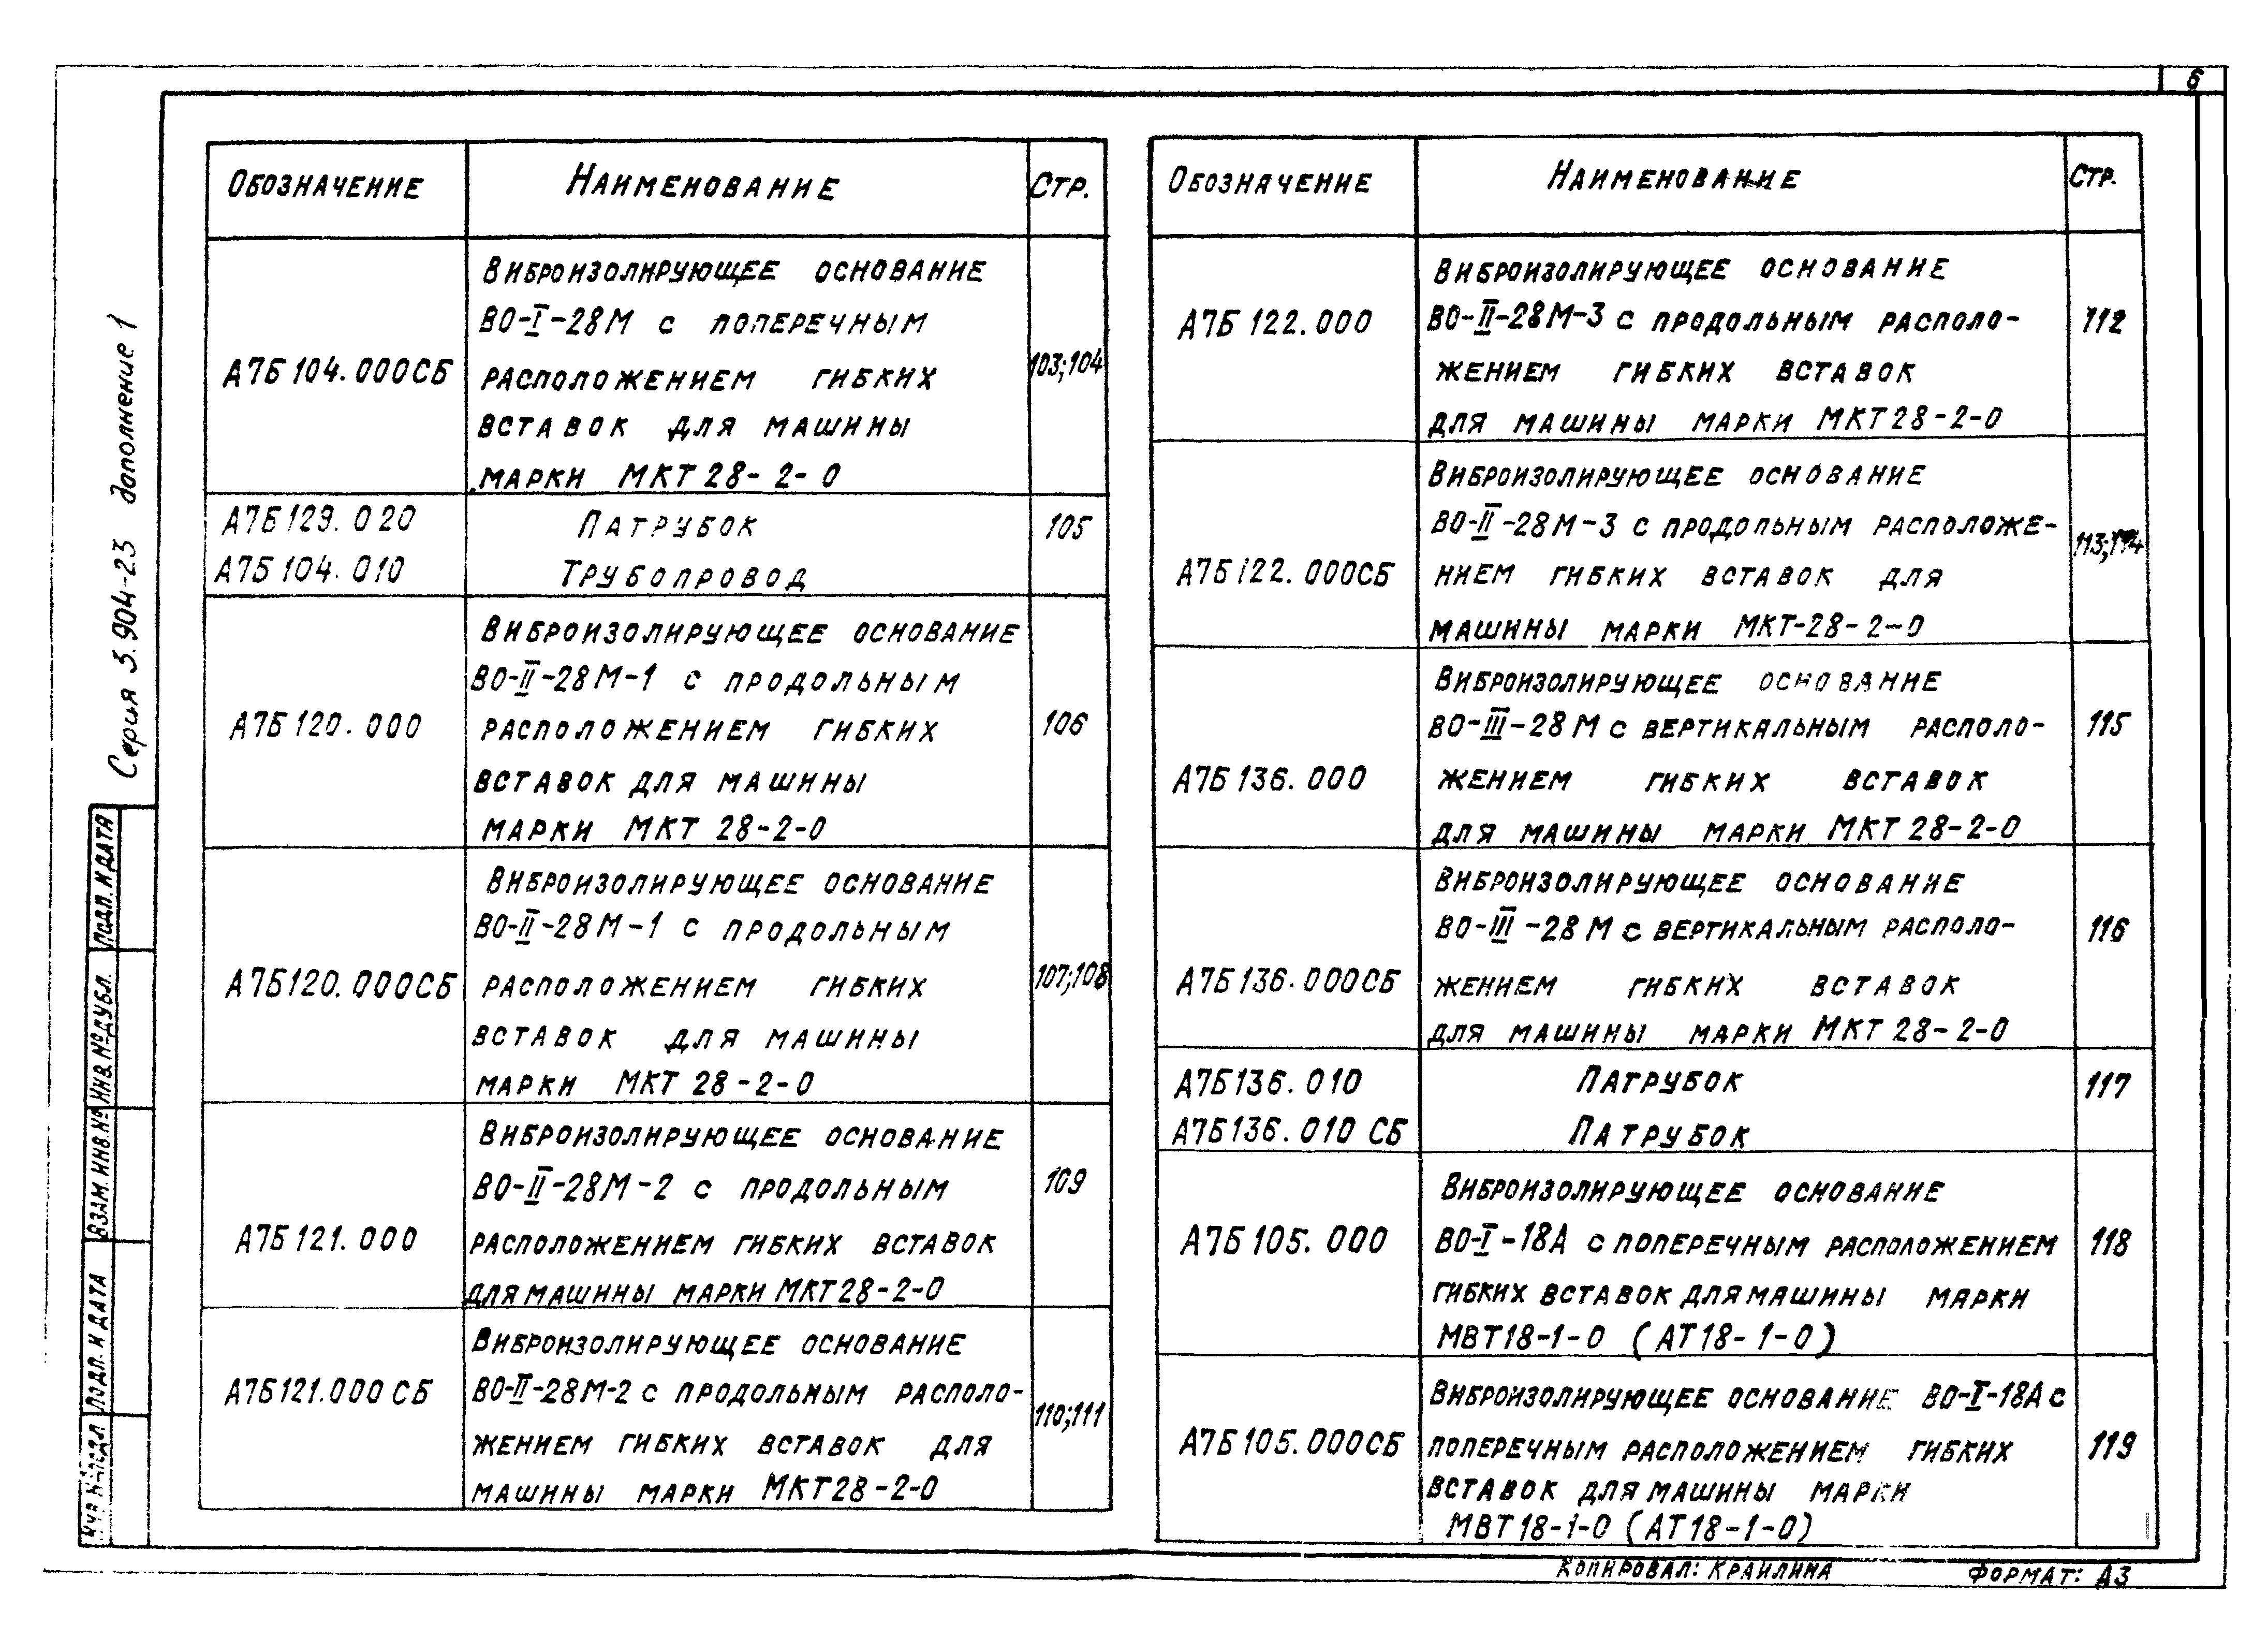 6
Серия 3.904-23 дополнение 1
Обозначение Наименование Стр.
А7Б104.000СБ
Виброизолирующее основание
ВО-I-28М с поперечным
расположением гибких
вставок для машины
марки МКТ 28-2-0
103;104
А7Б129.020 Патрубок 105
А7Б104.010 Трубопровод
А7Б120.000
Виброизолирующее основание
ВО-II-28М-1 с продольным
расположением гибких
вставок для машины
марки МКТ 28-2-0
106
А7Б120.000СБ
Виброизолирующее основание
ВО-II-28М-1 с продольным
расположением гибких
вставок для машины
марки МКТ 28-2-0
107;108
А7Б121.000
Виброизолирующее основание
ВО-II-28М-2 с продольным
расположением гибких вставок
для машины марки МКТ28-2-0
109
А7Б121.000 СБ
Виброизолирующее основание
ВО-II-28М-2 с продольным располо-
жением гибких вставок для
машины марки МКТ28-2-0
110;111
Обозначение Наименование Стр.
А7Б122.000
Виброизолирующее основание
ВО-II-28М-3 с продольным располо-
жением гибких вставок
для машины марки МКТ28-2-0
112
А7Б122.000СБ
Виброизолирующее основание
ВО-II-28М-3 с продольным расположе-
нием гибких вставок для
машины марки МКТ-28-2-0
113;114
А7Б136.000
Виброизолирующее основание
ВО-III-28М с вертикальным располо-
жением гибких вставок
для машины марки МКТ 28-2-0
115
А7Б136.000СБ
Виброизолирующее основание
ВО-III-28М с вертикальным располо-
жением гибких вставок
для машины марки МКТ 28-2-0
116
А7Б136.010 Патрубок 117
А7Б136.010 СБ Патрубок
А7Б105.000
Виброизолирующее основание
ВО-I-18А с поперечным расположением
гибких вставок для машины марки
МВТ18-1-0 (АТ18-1-0)
118
А7Б105.000СБ
Виброизолирующее основание ВО-I-18А с
поперечным расположением гибких
вставок для машины марки
МВТ18-1-0 (АТ18-1-0)
119
Подп. и дата
Инв. № дубл.
Взам. инв. №
Подп. и дата
Инв. № подл
Копировал: Краилина Формат: А3